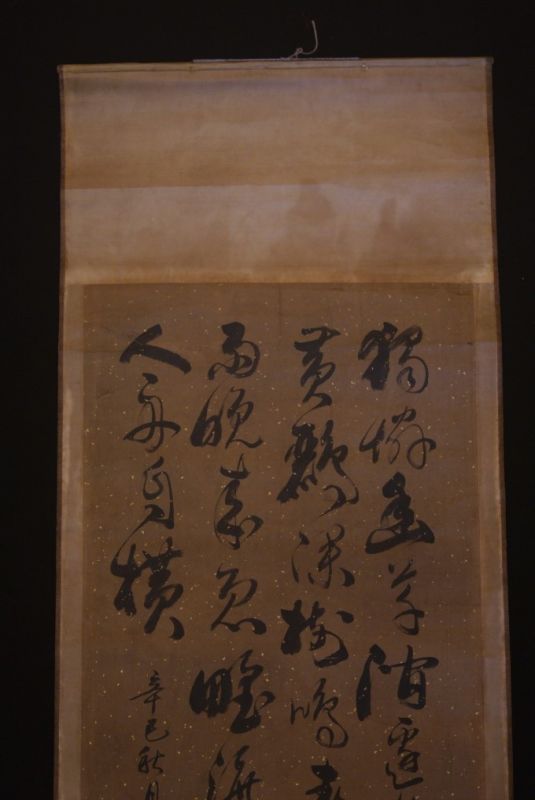 獨憐幽草澗邊
黃鸝深樹鳴春
雨晚來急野渡
人舟自橫
辛巳秋月